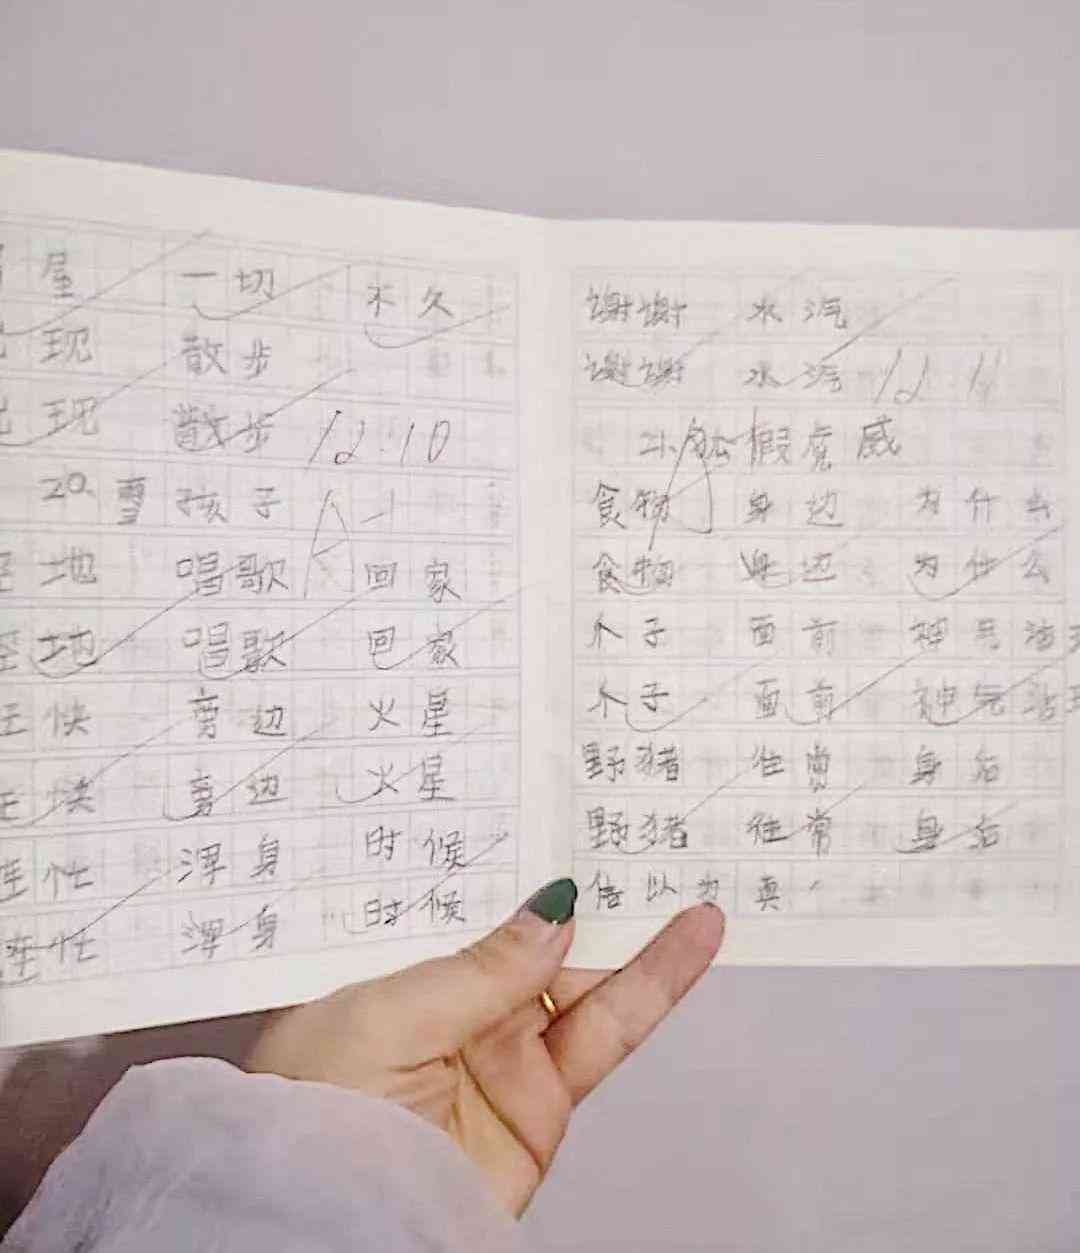 屋 一切 不久
现 散步
现 散步 12.10
20、雪孩子 A-
地 唱歌 回家
地 唱歌 回家
快 旁边 火星
快 旁边 火星
连忙 浑身 时候
连忙 浑身 时候
谢谢 水汽
谢谢 水汽 12.11
假 威
食物 身边 为什么
食物 身边 为什么
个子 面前 神气活
个子 面前 神气活
野猪 往常 身后
野猪 往常 身后
信以为真